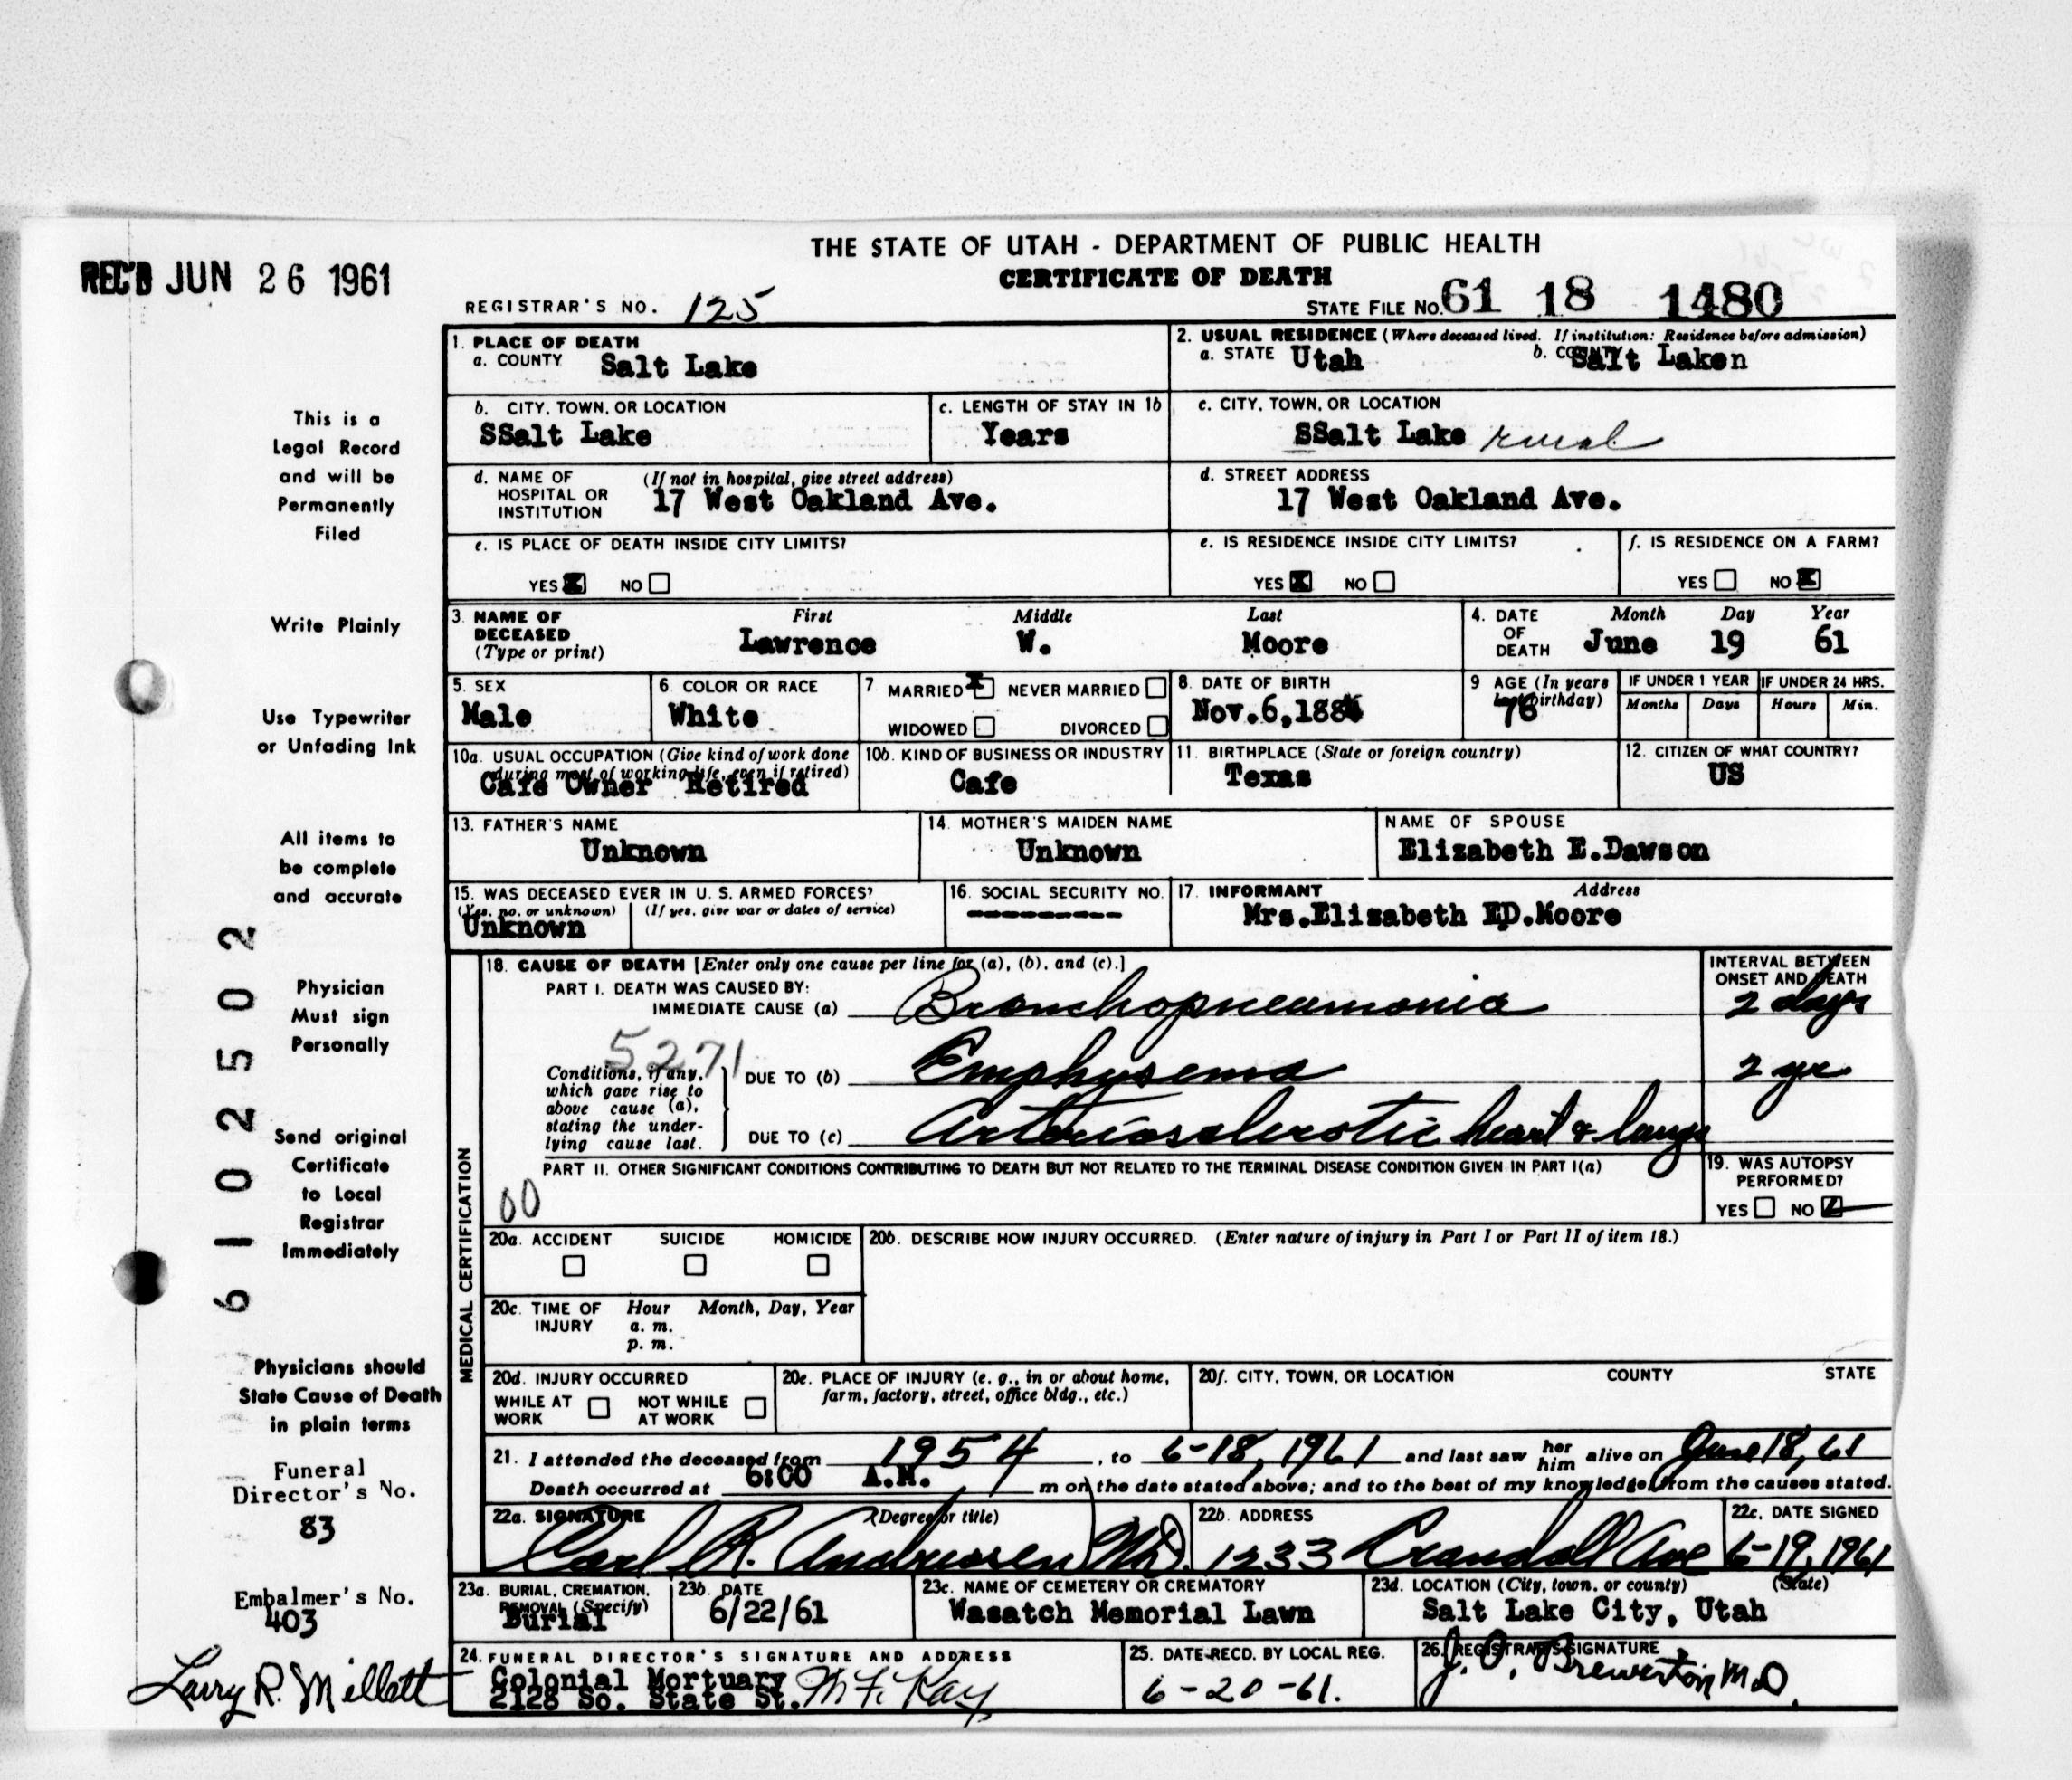 THE STATE OF UTAH - DEPARTMENT OF PUBLIC HEALTH
REC'D JUN 26 1961
CERTIFICATE OF DEATH
REGISTRAR'S NO. 125
STATE FILE NO. 61 18 1480
1. PLACE OF DEATH
a. COUNTY Salt Lake
2. USUAL RESIDENCE (Where deceased lived. If institution: Residence before admission)
a. STATE Utah b. COUNTY Salt Laken
b. CITY, TOWN, OR LOCATION
SSalt Lake
c. LENGTH OF STAY IN 1b
Years
c. CITY, TOWN, OR LOCATION
SSalt Lake rural
d. NAME OF HOSPITAL OR INSTITUTION (If not in hospital, give street address)
17 West Oakland Ave.
d. STREET ADDRESS
17 West Oakland Ave.
e. IS PLACE OF DEATH INSIDE CITY LIMITS?
YES X NO
e. IS RESIDENCE INSIDE CITY LIMITS?
YES X NO
f. IS RESIDENCE ON A FARM?
YES NO X
3. NAME OF DECEASED (Type or print)
First Middle Last
Lawrence W. Moore
4. DATE OF DEATH
Month Day Year
June 19 61
5. SEX
Male
6. COLOR OR RACE
White
7. MARRIED X NEVER MARRIED
WIDOWED DIVORCED
8. DATE OF BIRTH
Nov.6,188
9. AGE (In years last birthday)
76
IF UNDER 1 YEAR
Months Days
IF UNDER 24 HRS.
Hours Min.
10a. USUAL OCCUPATION (Give kind of work done during most of working life, even if retired)
Cafe Owner Retired
10b. KIND OF BUSINESS OR INDUSTRY
Cafe
11. BIRTHPLACE (State or foreign country)
Texas
12. CITIZEN OF WHAT COUNTRY?
US
13. FATHER'S NAME
Unknown
14. MOTHER'S MAIDEN NAME
Unknown
NAME OF SPOUSE
Elizabeth E.Dawson
15. WAS DECEASED EVER IN U. S. ARMED FORCES?
(Yes, no, or unknown) (If yes, give war or dates of service)
Unknown
16. SOCIAL SECURITY NO.
----------
17. INFORMANT Address
Mrs.Elizabeth ED.Moore
MEDICAL CERTIFICATION
18. CAUSE OF DEATH [Enter only one cause per line for (a), (b), and (c).]
INTERVAL BETWEEN ONSET AND DEATH
PART I. DEATH WAS CAUSED BY:
IMMEDIATE CAUSE (a) Bronchopneumonia 2 days
5271
Conditions, if any, which gave rise to above cause (a), stating the underlying cause last.
DUE TO (b) Emphysema 2 yr
DUE TO (c) Arteriosclerotic heart & lungs
PART II. OTHER SIGNIFICANT CONDITIONS CONTRIBUTING TO DEATH BUT NOT RELATED TO THE TERMINAL DISEASE CONDITION GIVEN IN PART I(a)
00
19. WAS AUTOPSY PERFORMED?
YES NO
20a. ACCIDENT SUICIDE HOMICIDE
20b. DESCRIBE HOW INJURY OCCURRED. (Enter nature of injury in Part I or Part II of item 18.)
20c. TIME OF INJURY Hour Month, Day, Year
a. m.
p. m.
20d. INJURY OCCURRED
WHILE AT WORK NOT WHILE AT WORK
20e. PLACE OF INJURY (e. g., in or about home, farm, factory, street, office bldg., etc.)
20f. CITY, TOWN, OR LOCATION COUNTY STATE
21. I attended the deceased from 1954, to 6-18, 1961 and last saw her him alive on June 18, 61
Death occurred at 6:00 A.M. m on the date stated above; and to the best of my knowledge, from the causes stated.
22a. SIGNATURE (Degree or title)
Carl R. Andreasen MD.
22b. ADDRESS
1233 Crandall Ave
22c. DATE SIGNED
6-19, 1961
23a. BURIAL, CREMATION, REMOVAL (Specify)
Burial
23b. DATE
6/22/61
23c. NAME OF CEMETERY OR CREMATORY
Wasatch Memorial Lawn
23d. LOCATION (City, town, or county) (State)
Salt Lake City, Utah
24. FUNERAL DIRECTOR'S SIGNATURE AND ADDRESS
Colonial Mortuary
2128 So. State St. M F. Kay
25. DATE RECD. BY LOCAL REG.
6-20-61.
26. REGISTRAR'S SIGNATURE
J. O. Brewerton M.D.
This is a
Legal Record
and will be
Permanently
Filed
Write Plainly
Use Typewriter
or Unfading Ink
All items to
be complete
and accurate
Physician
Must sign
Personally
Send original
Certificate
to Local
Registrar
Immediately
Physicians should
State Cause of Death
in plain terms
Funeral
Director's No.
83
Embalmer's No.
403
Larry R. Millett
61025502